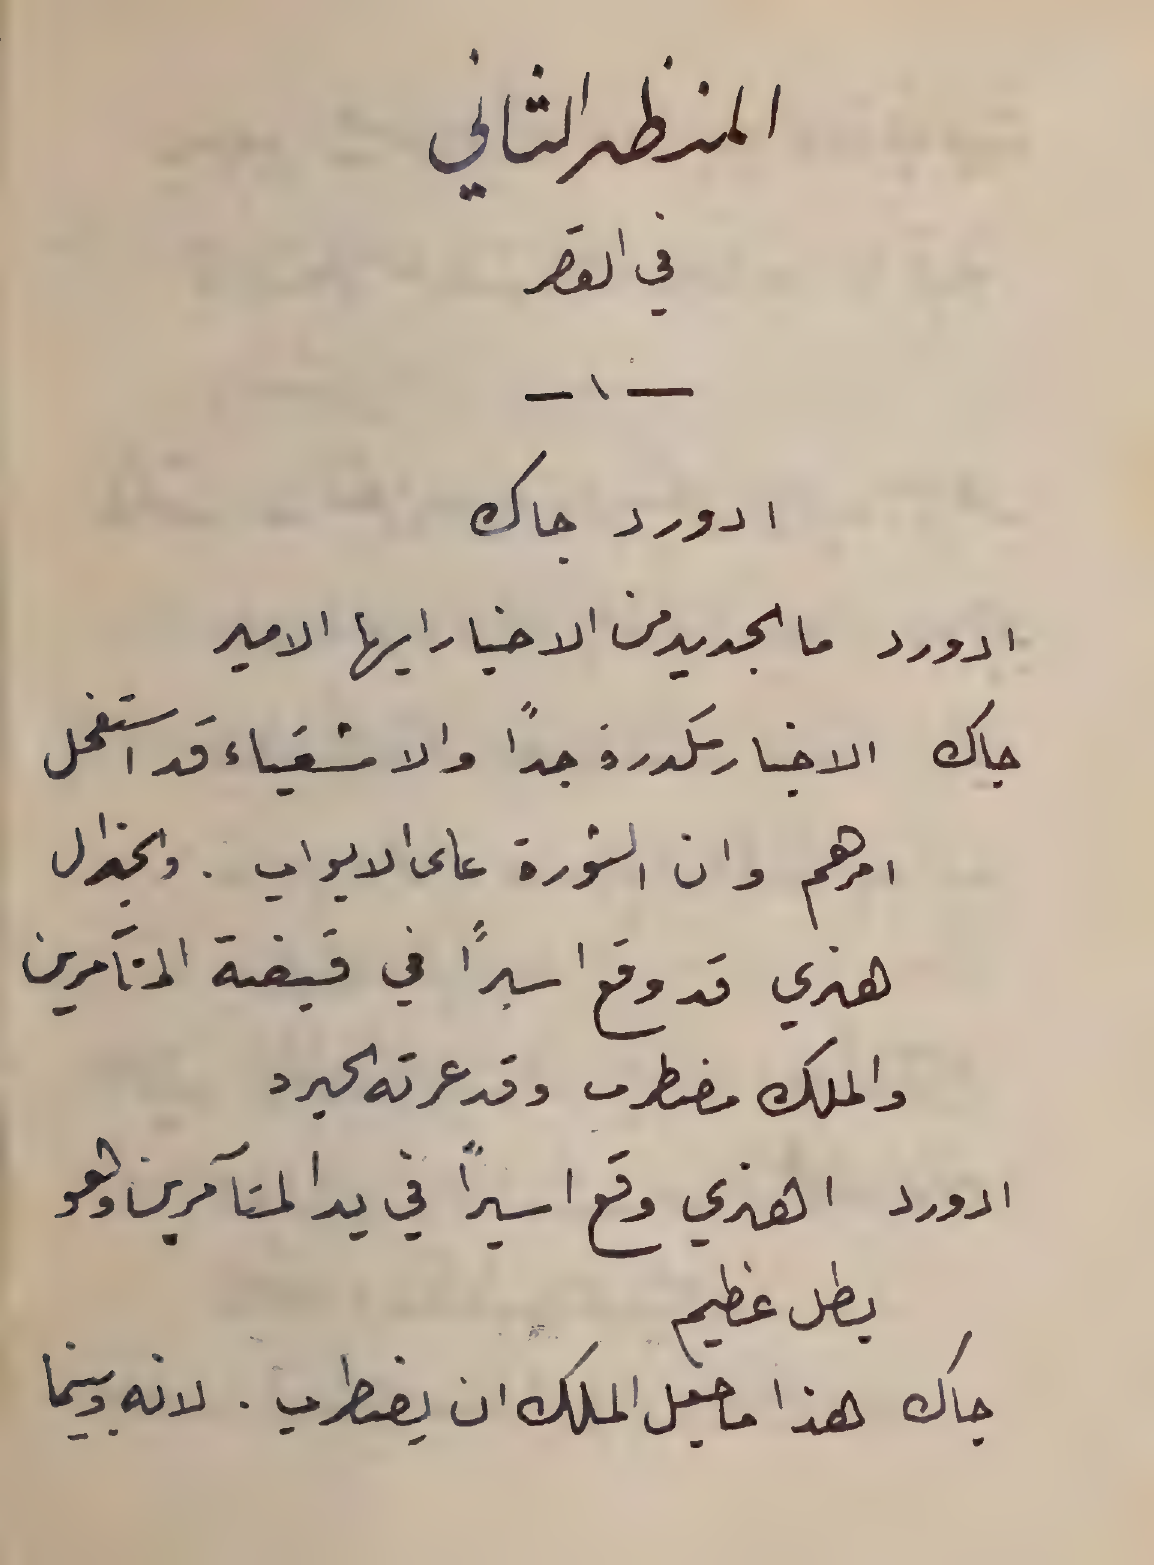 المنظر الثاني
في القصر
— ١ —
ادورد جاك
ادورد ما الجديد من الاخبار ايها الامير
جاك الاخبار مكدرة جداً والاشقياء قد استفحل
امرهم وان الثورة على الابواب . والجنرال
هنري قد وقع اسيراً في قبضة المتآمرين
والملك مضطرب وقد عرته الحيرة
ادورد اهنري وقع اسيراً في يد المتآمرين وهو
بطل عظيم
جاك هذا ما جعل الملك ان يضطرب . لانه وبينما